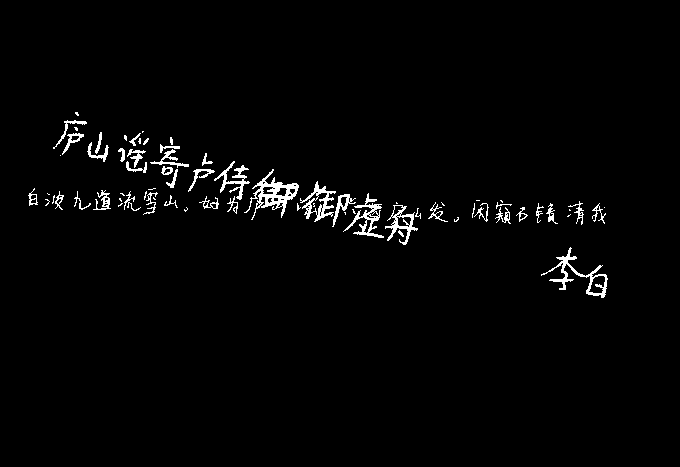 庐山谣寄卢侍御御虚舟
白波九道流雪山。好为庐山发。闲窥石镜清我
李白